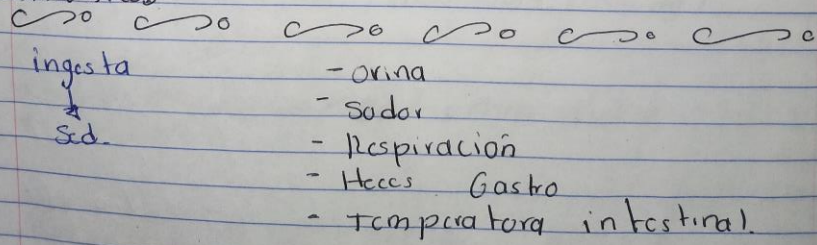 ingesta
↓
Sed.
- orina
- Sudor
- Respiración
- Heces Gastro
- Temperatura intestinal.